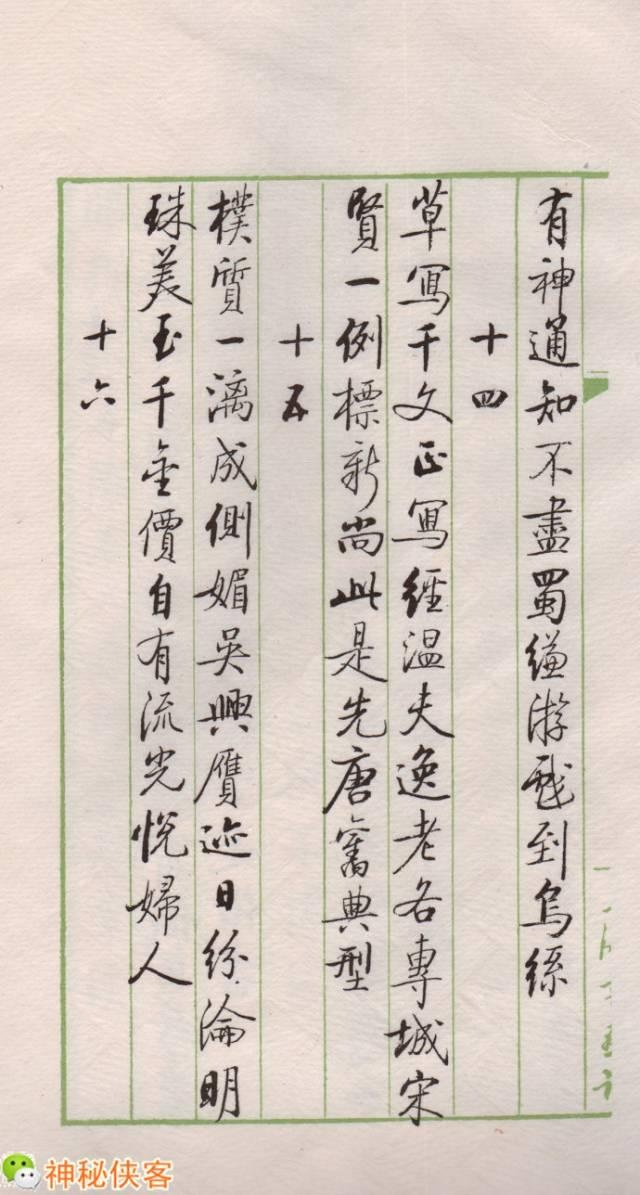 有神通知不盡蜀縑游戲到烏絲
十四
草寫千文正寫經溫夫逸老各專城宋
賢一例標新尚此是先唐舊典型
十五
樸質一漓成側媚吳興贋迹日紛淪明
珠美玉千金價自有流光悅婦人
十六
神秘侠客